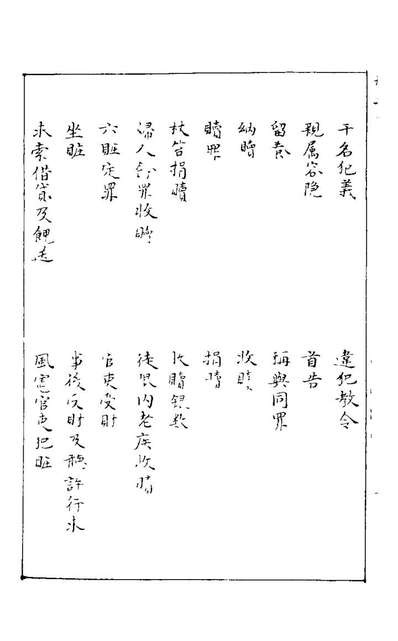 干名犯義
違犯教令
親属容隐
首告
留養
稱與同罪
納贖
收贖
贖罪
捐贖
杖笞捐贖
代贖銀數
婦人犯罪收贖
徒限内老疾收贖
六賍定罪
官吏受財
坐賍
事後受財及聽許行求
求索借貸及餽送
風憲官吏犯賍